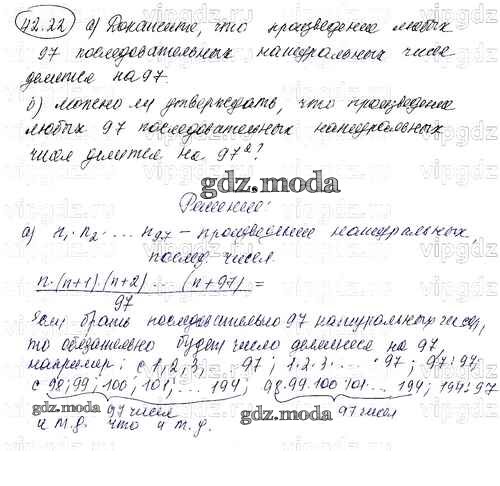 42.22 а) Докажите, что произведение любых
97 последовательных натуральных чисел
делится на 97.
б) можно ли утверждать, что произведение
любых 97 последовательных натуральных
чисел делится на 97²?
gdz.moda
Решение:
а) n₁·n₂·...n₉₇ – произведение натуральных,
послед. чисел
n·(n+1)·(n+2)·...·(n+97) =
97
Если брать последовательно 97 натуральных чисел,
то обязательно будет число делящееся на 97,
например: с 1, 2, 3, ... 97; 1·2·3·....·97; 97:97
с 98; 99; 100; 101;... 194; 98·99·100·101·... 194; 194:97
97 чисел 97 чисел
gdz.moda gdz.moda
и т.д. что и т.д.